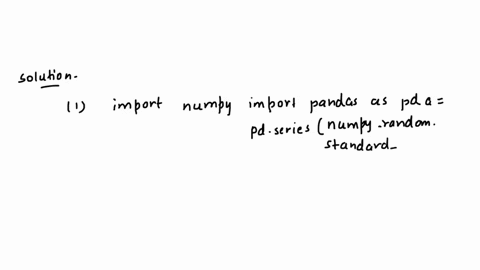 solution.
(1) import numpy import pandas as pd a =
pd.series (numpy.random.
standard_